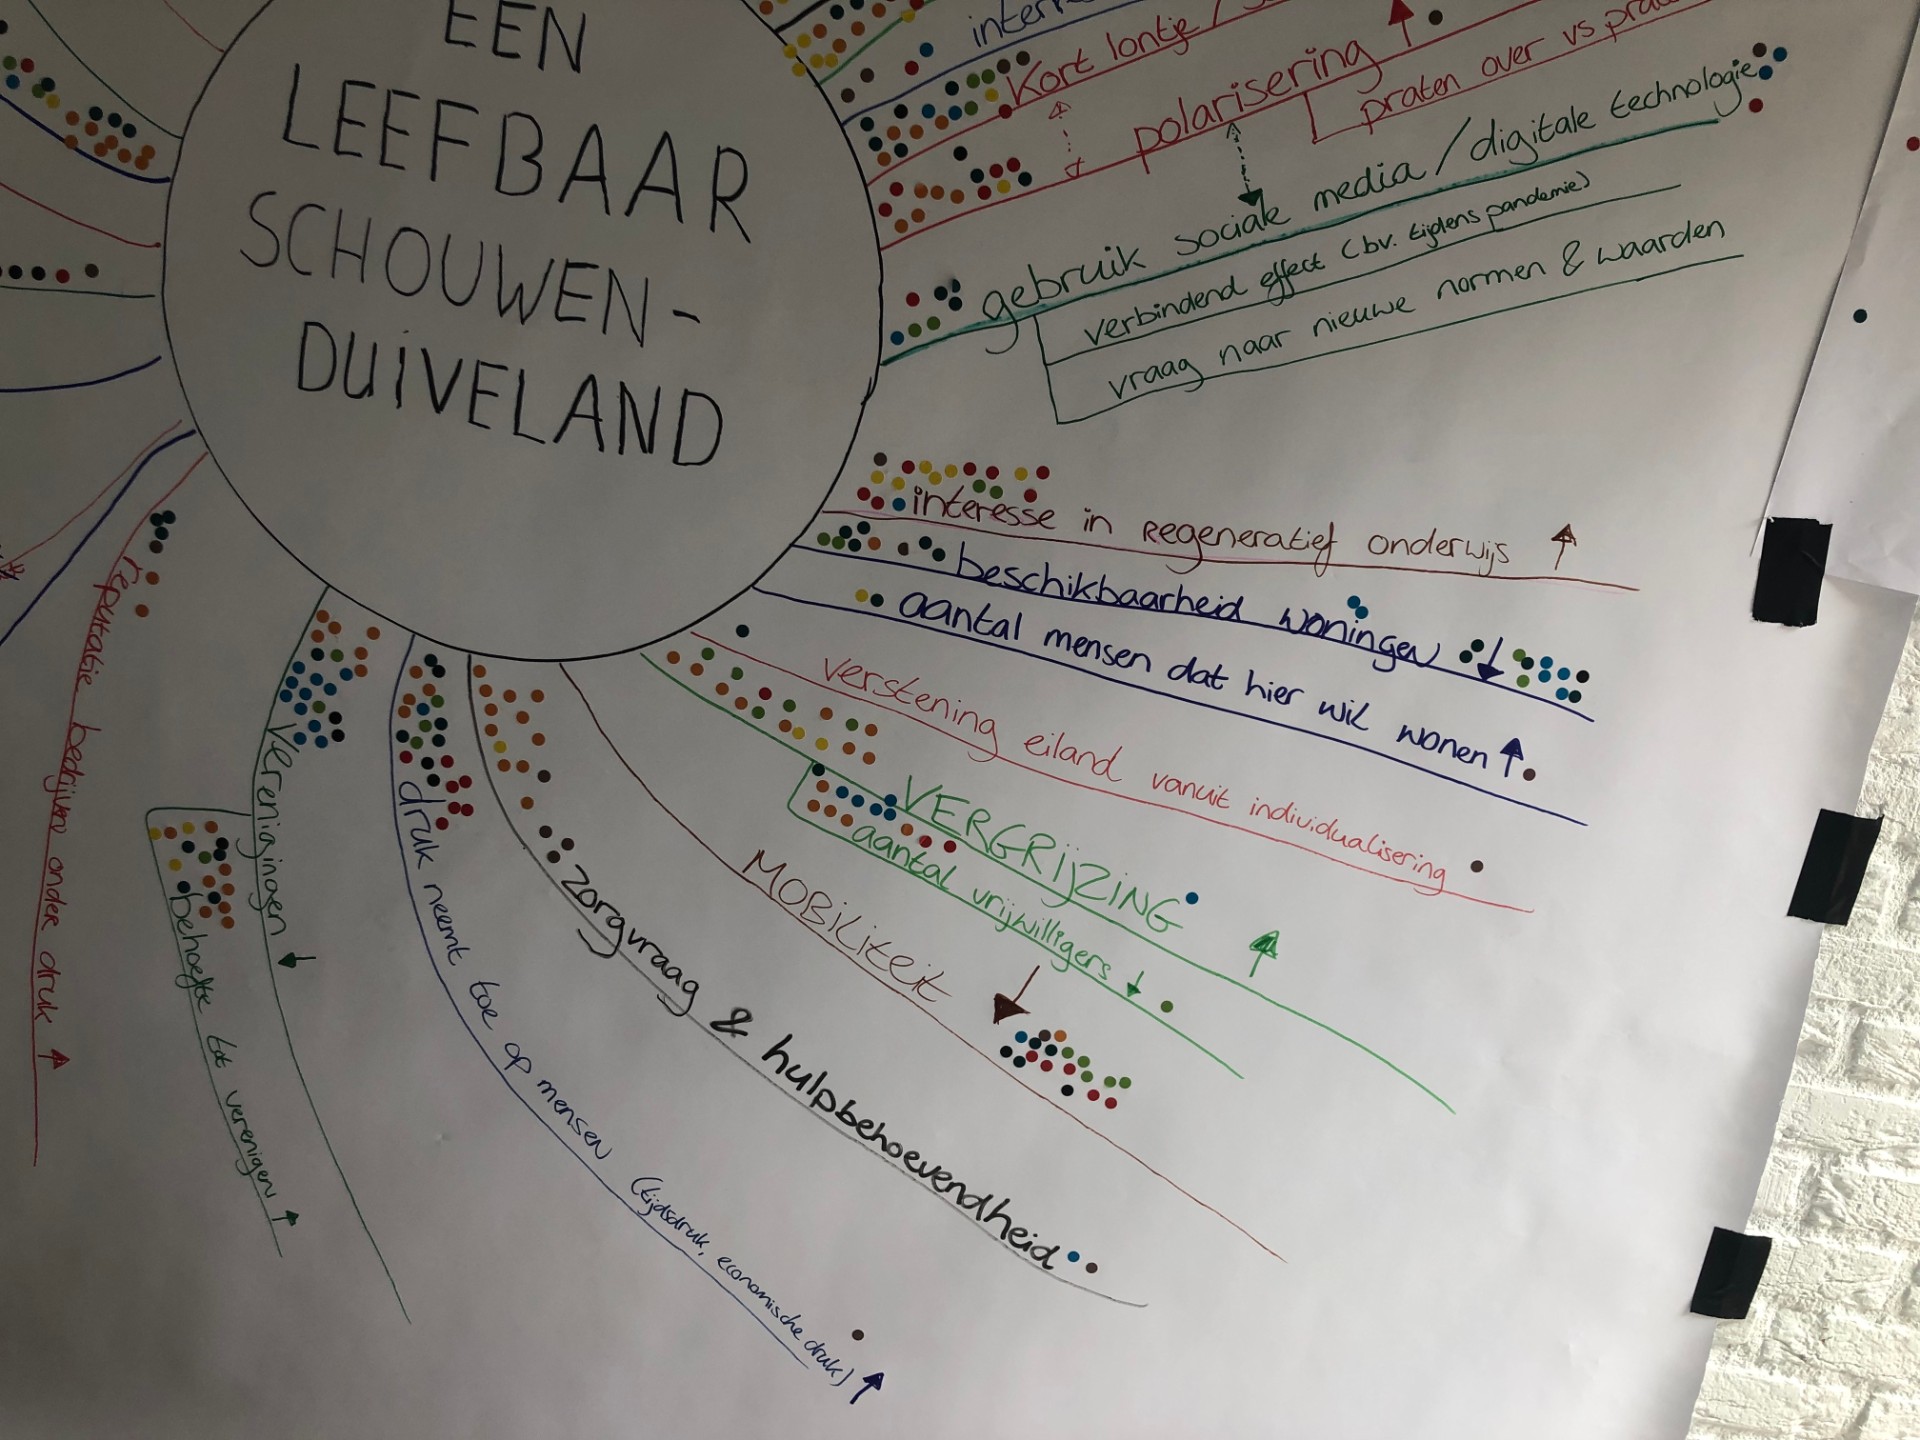 EEN
LEEFBAAR
SCHOUWEN-
DUIVELAND
Kort lontje /
polarisering
praten over vs
gebruik sociale media / digitale technologie
verbindend effect (bv. tijdens pandemie)
vraag naar nieuwe normen & waarden
interesse in Regeneratief onderwijs ↑
beschikbaarheid woningen ↓
aantal mensen dat hier wil wonen ↑
verstening eiland vanuit individualisering
VERGRIJZING ↑
aantal vrijwilligers ↓
MOBILITEIT ↓
zorgvraag & hulpbehoevendheid
druk neemt toe op mensen (tijdsdruk, economische druk) ↑
Verenigingen ↓
behoefte tot verenigen ↑
reputatie bedrijven onder druk ↑